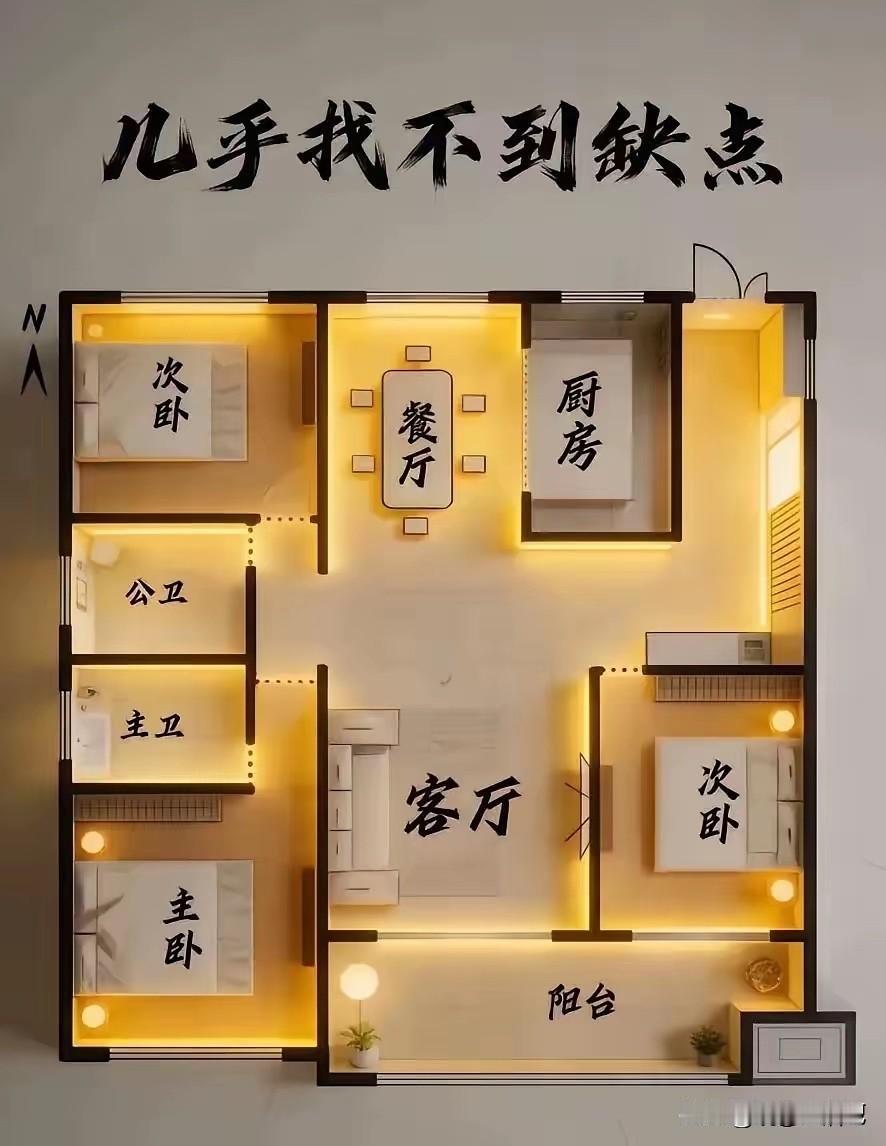 几乎找不到缺点
N
次卧
餐厅
厨房
公卫
主卫
客厅
次卧
主卧
阳台